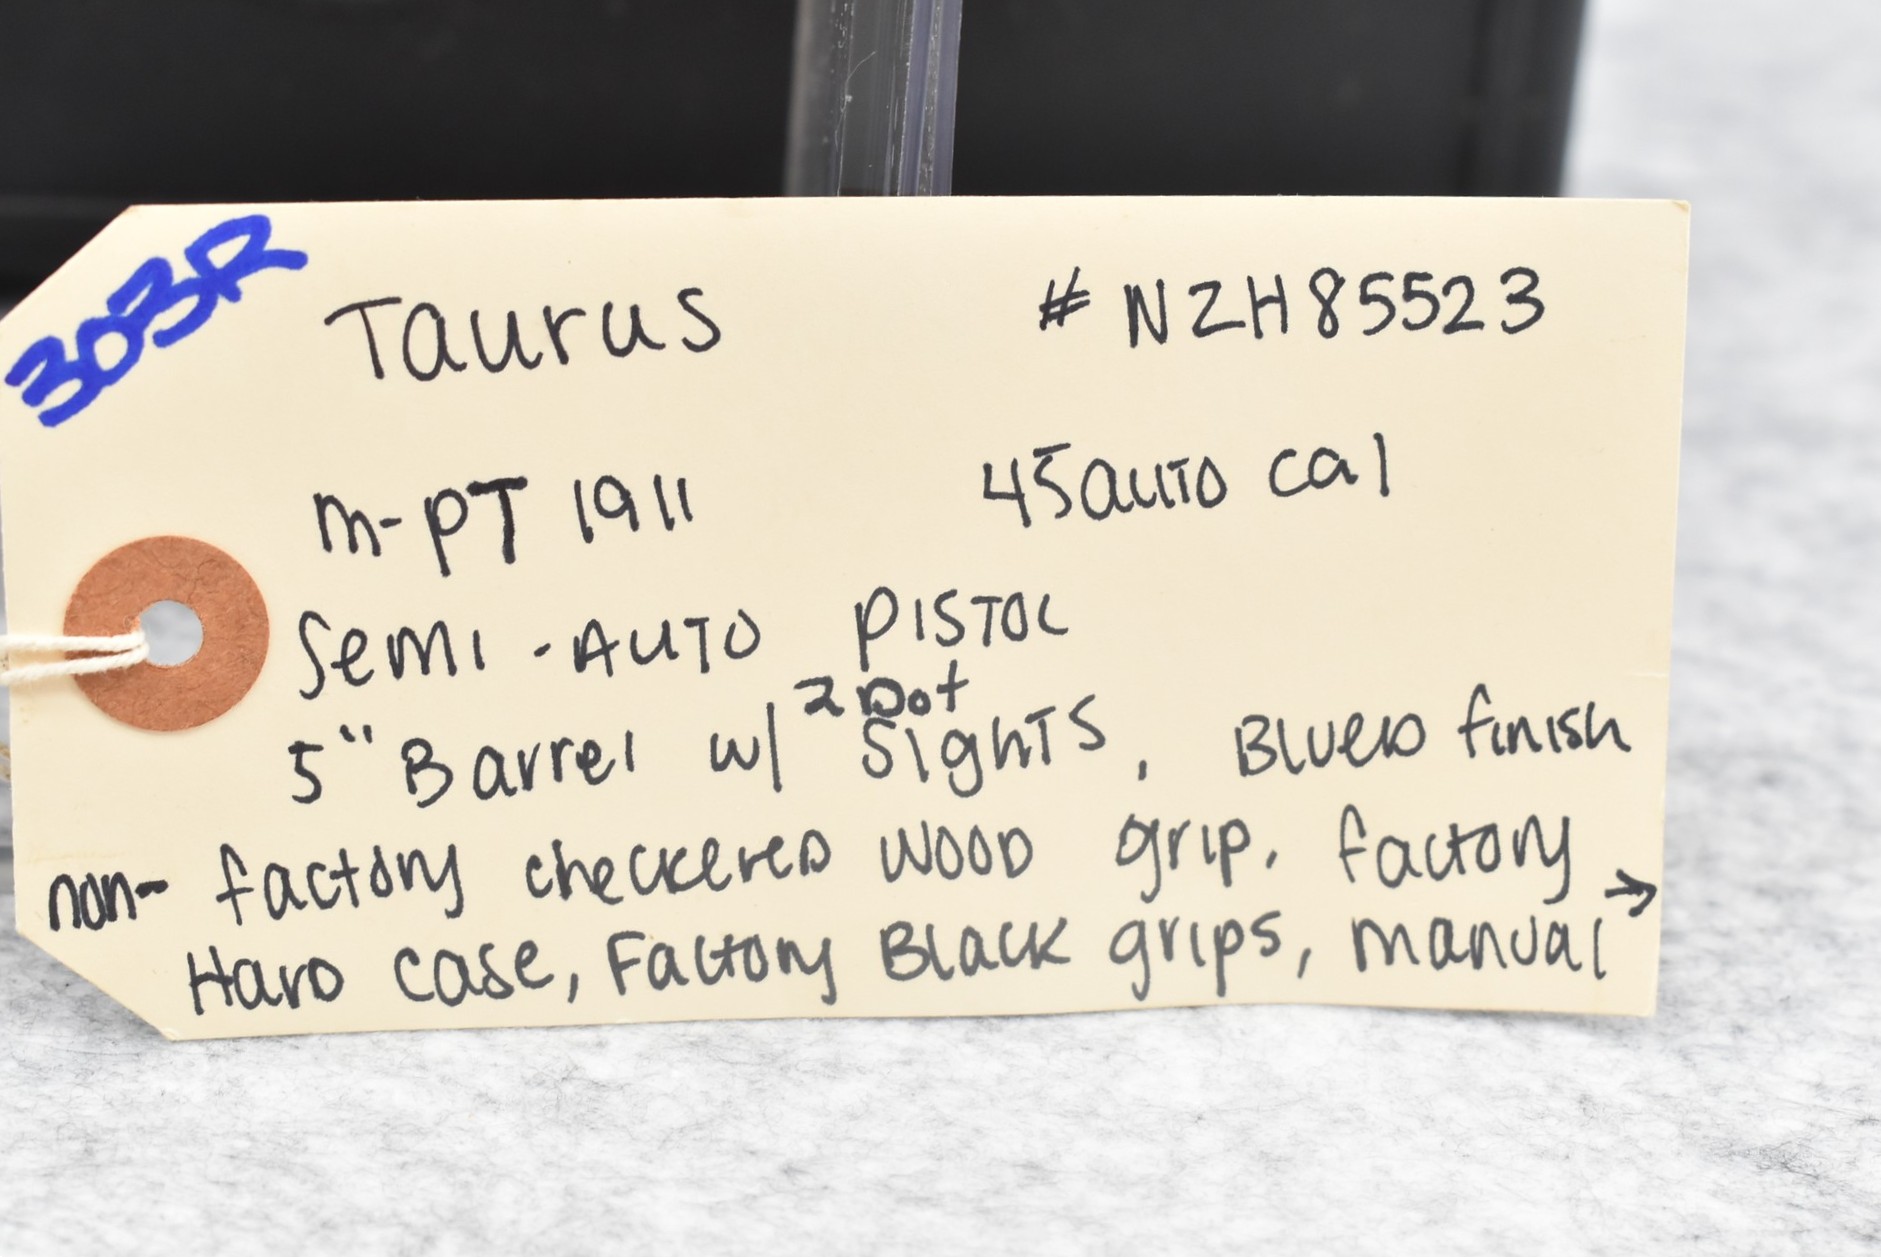 303R
Taurus # NZH85523
m-PT 1911 45 auto cal
Semi-Auto Pistol
2 Dot
5" Barrel w/ Sights, Blued finish
non- factory checkered wood grip, factory
Hard case, Factory Black grips, manual →